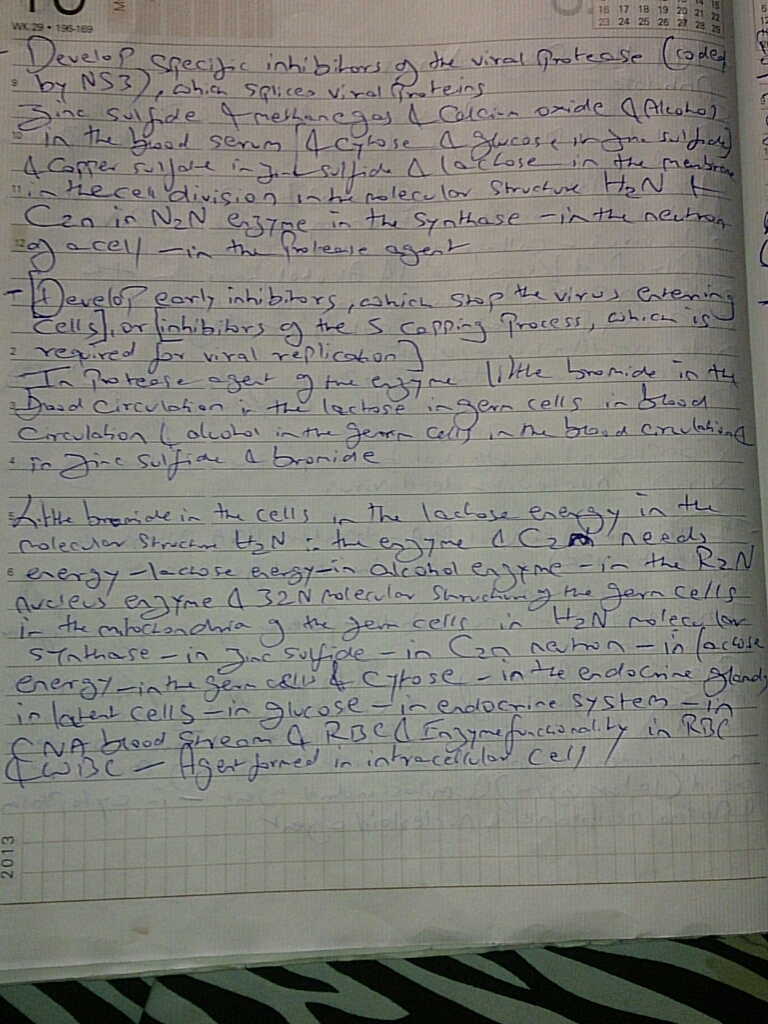 WK 29 • 196-169
15 16 17 18 19 20 21 22
23 24 25 26 27 28 29
- Develop specific inhibitors of the viral protease (coded
by NS3), which splices viral proteins
Zinc sulfide & methane gas & Calcium oxide & (Alcohol
in the blood serum & cytose & glucose in zinc sulfide)
& Copper sulfate in zinc sulfide & lactose in the membrane
in the cell division in the molecular structure H2N
C2n in N2N enzyme in the synthase - in the neutron
of a cell - in the Protease agent
- Develop early inhibitors, which stop the virus entering
cells], or [inhibitors of the 5 capping process, which is
required for viral replication]
In Protease agent of the enzyme little bromide in the
Blood Circulation in the lactose in germ cells in blood
Circulation (alcohol in the germ cells in the blood circulation &
in zinc sulfide & bromide
Little bromide in the cells in the lactose energy in the
molecular structure H2N in the enzyme & C2n needs
energy - lactose energy - in alcohol enzyme - in the R2N
nucleus enzyme & 32N molecular structure of the germ cells
in the mitochondria of the germ cells in H2N molecular
synthase - in zinc sulfide - in C2n neutron - in lactose
energy - in the germ cells & cytose - in the endocrine glands
in latent cells - in glucose - in endocrine system - in
CNA blood stream & RBC & Enzyme functionality in RBC
& WBC - Agent formed in intracellular cell
2013